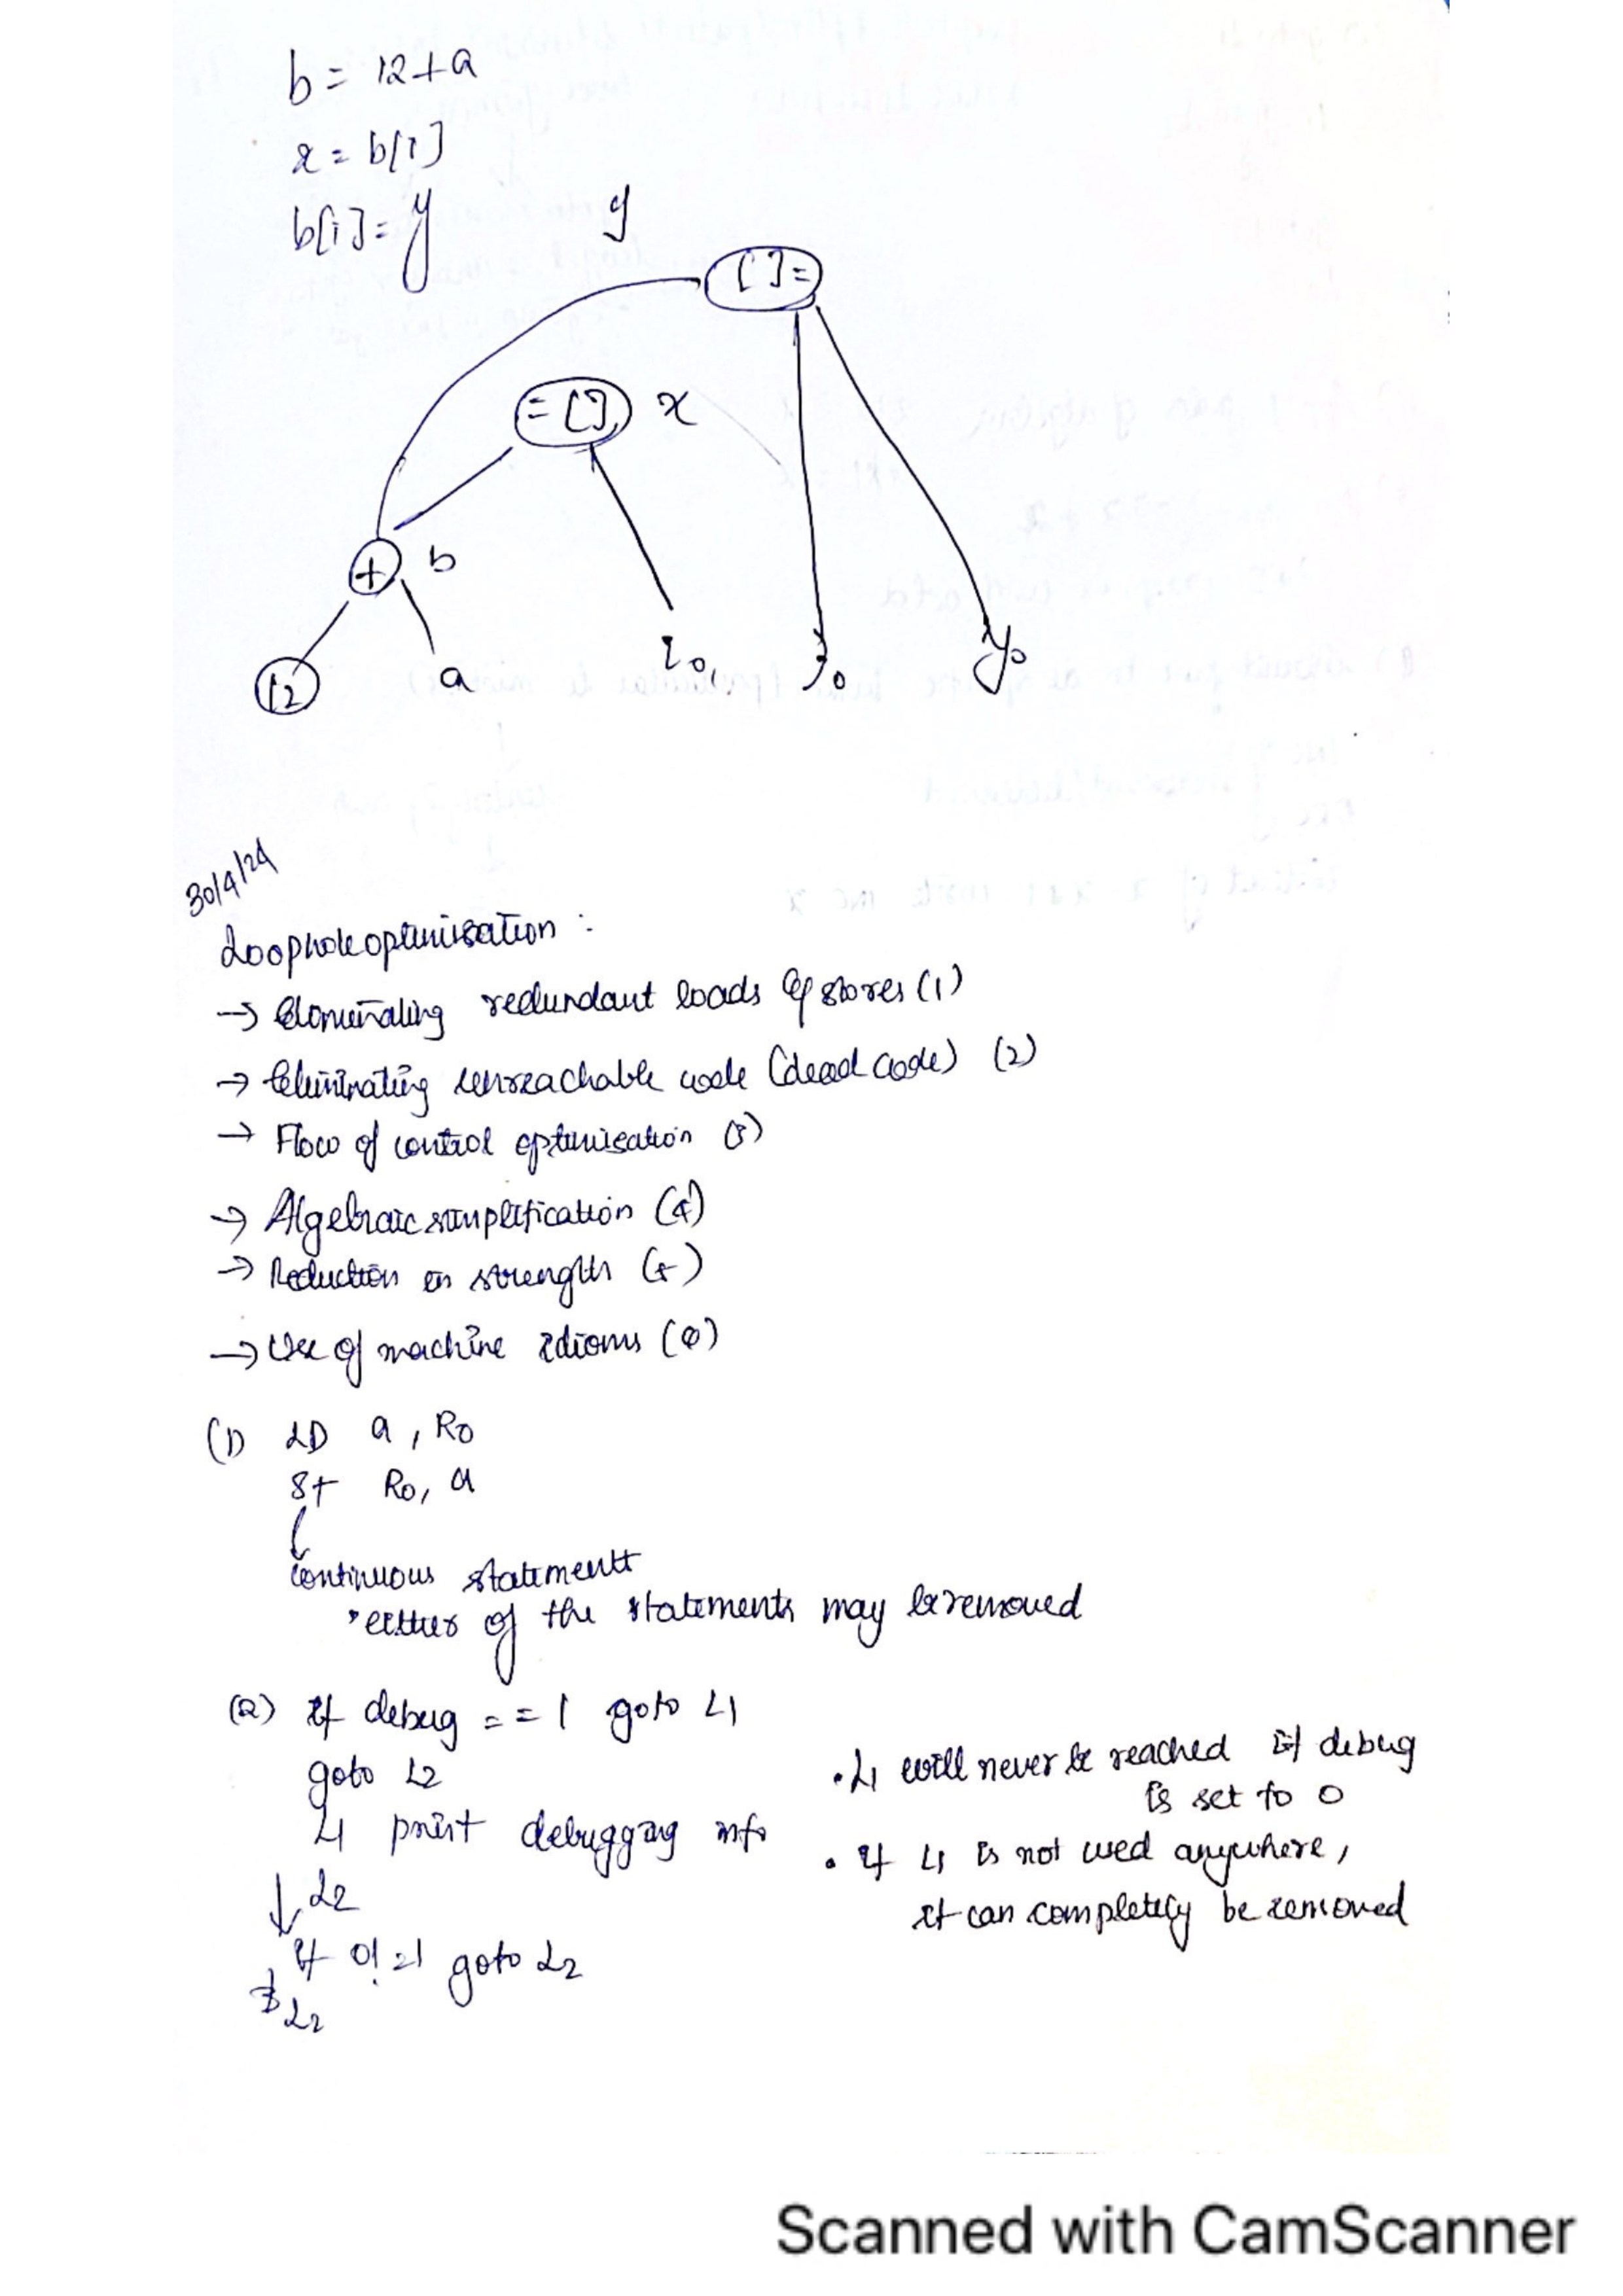 b = 12+a
x = b[i]
b[i] = y
y
[ ]=
=[ ] x
+ b
12 a i₀ j₀ y₀
30/4/24
Loophole optimisation :
→ Eliminating redundant loads & stores (1)
→ Eliminating unreachable code (dead code) (2)
→ Flow of control optimisation (3)
→ Algebraic simplification (4)
→ Reduction in strength (5)
→ Use of machine idioms (6)
(1) LD a, R0
St R0, a
continuous statements
• either of the statements may be removed
(2) if debug == 1 goto L1
goto L2
L1 print debugging info
L2
if 0!=1 goto L2
L2
• L1 will never be reached if debug
is set to 0
• If L1 is not used anywhere,
it can completely be removed
Scanned with CamScanner